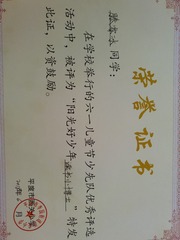 荣誉证书
同学：
在学校举行的六一儿童节少先队优秀评选
活动中，被评为“阳光好少年”特发
此证，以资鼓励。
平度市